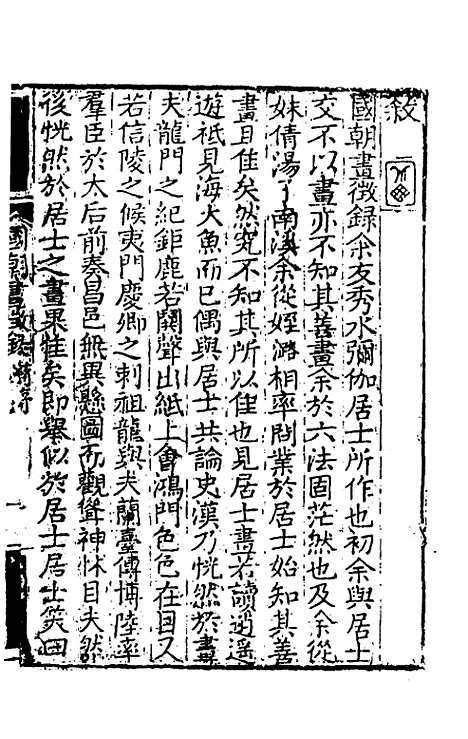 敘
國朝畫徵錄余友秀水彌伽居士所作也初余與居士
交不以畫亦不知其善畫余於六法固茫然也及余從
妹倩湯南溪余從姪潞相率問業於居士始知其善
畫且佳矣然究不知其所以佳也見居士畫若讀逍遙
遊祗見海大魚而已偶與居士共論史漢乃恍然於畫
夫龍門之紀鉅鹿若鬭聲出紙上會鴻門色色在目又
若信陵之候夷門慶卿之刺祖龍與夫蘭臺傳博陸率
羣臣於太后前奏昌邑無異懸圖而觀聳神怵目夫然
後恍然於居士之畫果佳矣即舉似於居士居士笑曰
國朝畫徵錄 蔣序 一